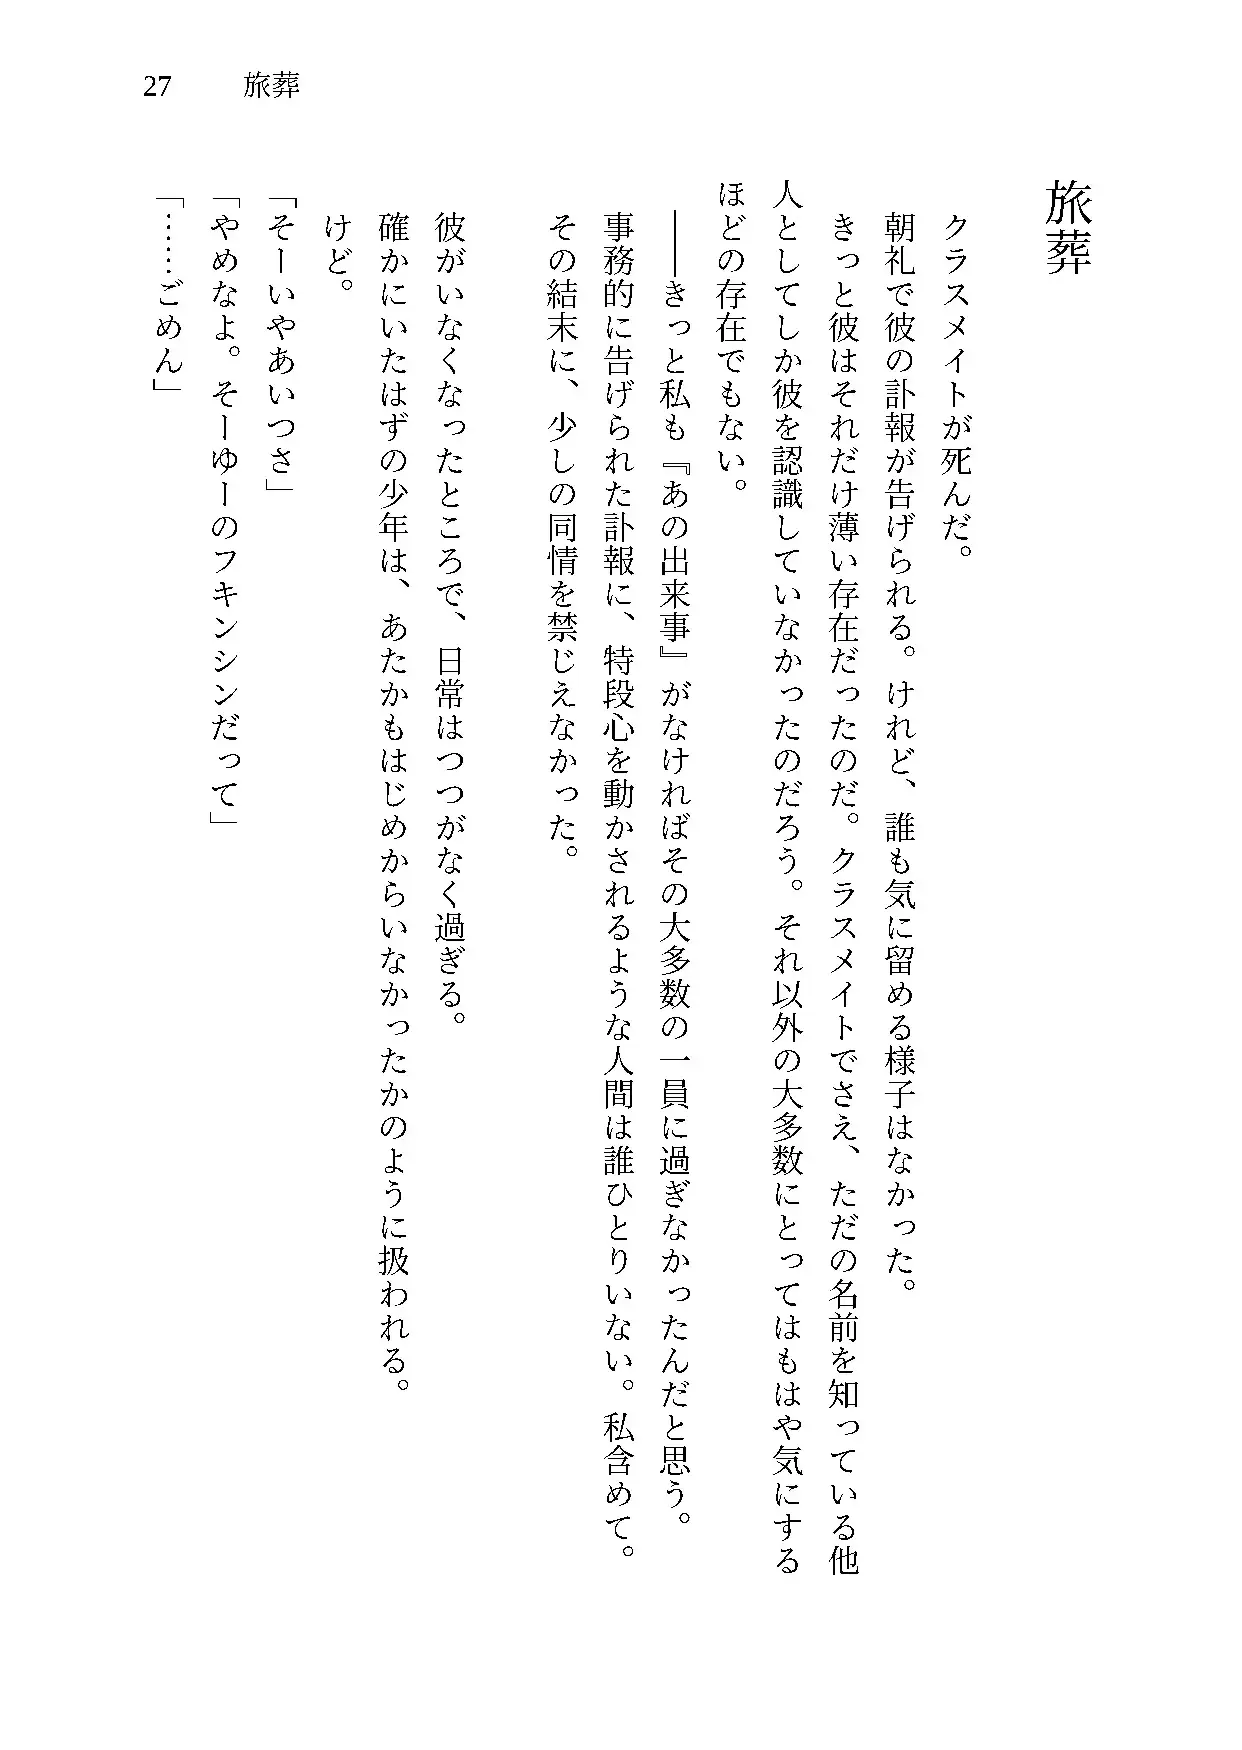 27 旅葬
旅葬
クラスメイトが死んだ。
朝礼で彼の訃報が告げられる。けれど、誰も気に留める様子はなかった。
きっと彼はそれだけ薄い存在だったのだ。クラスメイトでさえ、ただの名前を知っている他
人としてしか彼を認識していなかったのだろう。それ以外の大多数にとってはもはや気にする
ほどの存在でもない。
――きっと私も『あの出来事』がなければその大多数の一員に過ぎなかったんだと思う。
事務的に告げられた訃報に、特段心を動かされるような人間は誰ひとりいない。私含めて。
その結末に、少しの同情を禁じえなかった。
彼がいなくなったところで、日常はつつがなく過ぎる。
確かにいたはずの少年は、あたかもはじめからいなかったかのように扱われる。
けど。
「そーいやあいつさ」
「やめなよ。そーゆーのフキンシンだって」
「……ごめん」